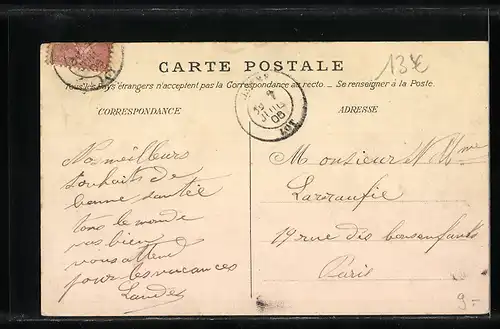 13€
CARTE POSTALE
Tous les Pays étrangers n'acceptent pas la Correspondance au recto. _ Se renseigner à la Poste.
CORRESPONDANCE
ADRESSE
LOT
Nos meilleurs
souhaits de
bonne santée
tous le monde
vas bien
vous attend
pour les vacances
Landes
Monsieur & Mme
Larraufie
19 rue des
Paris
9-